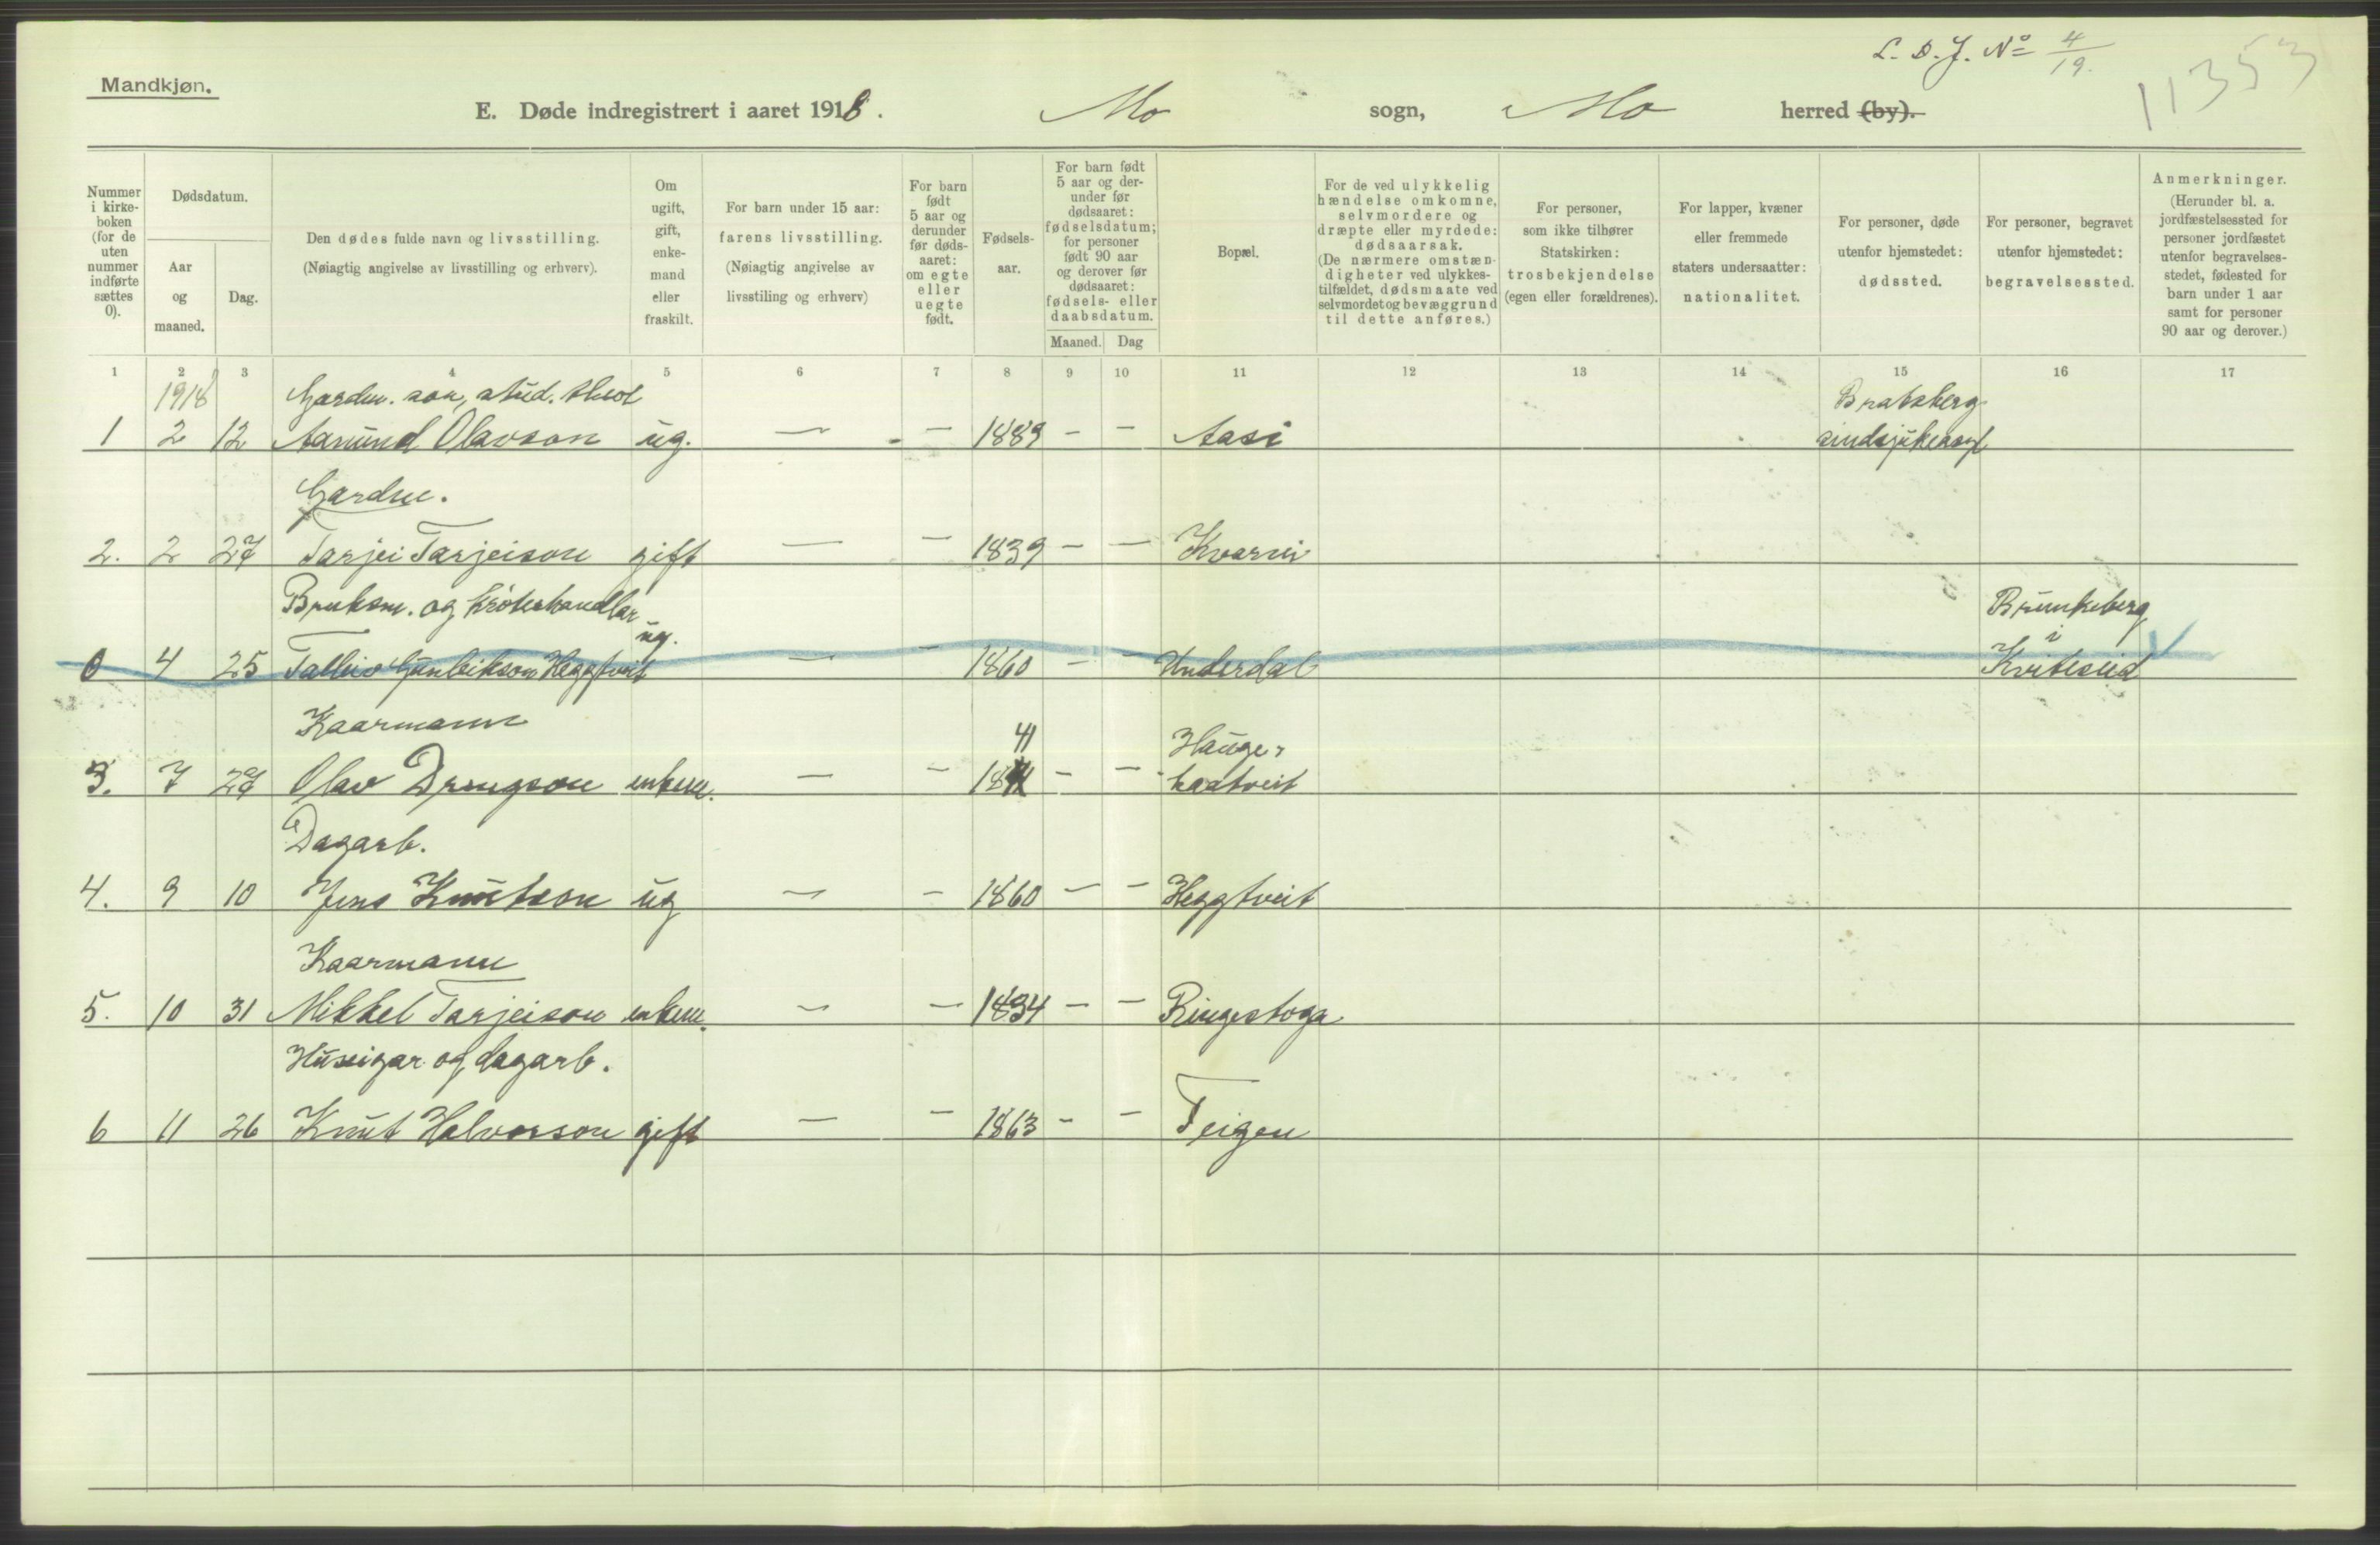 L. D. J. No 4/19.
11353
Mandkjøn.
E. Døde indregistrert i aaret 1918. Mo sogn, Mo herred (by).
Nummer i kirke-boken (for de uten nummer indførte sættes 0).
Dødsdatum.
Aar og maaned.
Dag.
Den dødes fulde navn og livsstilling. (Nøiagtig angivelse av livsstilling og erhverv).
Om ugift, gift, enke-mand eller fraskilt.
For barn under 15 aar: farens livsstilling. (Nøiagtig angivelse av livsstiling og erhverv)
For barn født 5 aar og derunder før døds-aaret: om egte eller uegte født.
Fødsels-aar.
For barn født 5 aar og der-under før dødsaaret: fødselsdatum; for personer født 90 aar og derover før dødsaaret: fødsels- eller daabsdatum.
Maaned. Dag
Bopæl.
For de ved ulykkelig hændelse omkomne, selvmordere og dræpte eller myrdede: dødsaarsak. (De nærmere omstæn-digheter ved ulykkes-tilfældet, dødsmaate ved selvmordet og bevæggrund til dette anføres.)
For personer, som ikke tilhører Statskirken: trosbekjendelse (egen eller forældrenes).
For lapper, kvæner eller fremmede staters undersaatter: nationalitet.
For personer, døde utenfor hjemstedet: dødssted.
For personer, begravet utenfor hjemstedet: begravelsessted.
Anmerkninger. (Herunder bl. a. jordfæstelsessted for personer jordfæstet utenfor begravelses-stedet, fødested for barn under 1 aar samt for personer 90 aar og derover.)
1 2 3 4 5 6 7 8 9 10 11 12 13 14 15 16 17
1918 Gardm. son, stud. theol Bratsberg
1 2 12 Aamund Olavson ug. — — 1889 – – Aasi sindsjukeasyl
Gardm.
2. 2 27 Tarjei Tarjeison gift — — 1839 – — Kvarni
Bruksm. og krøterhandlar Brunkeberg
ug. i
0 4 25 Talleiv Gunleikson Heggtveit — – 1860 – – Underdal Kviteseid
Kaarmann 41 Hauge-
3. 7 27 Olav Drengson enkem. — – 18 – – kaatveit
Dagarb.
4. 9 10 Jens Knutson ug — – 1860 – – Heggtveit
Kaarmann
5. 10 31 Mikkel Tarjeison enkem. – — 1834 – – Ringestoga
Huseigar og dagarb.
6 11 26 Knut Halvorson gift — – 1863 – – Teigen